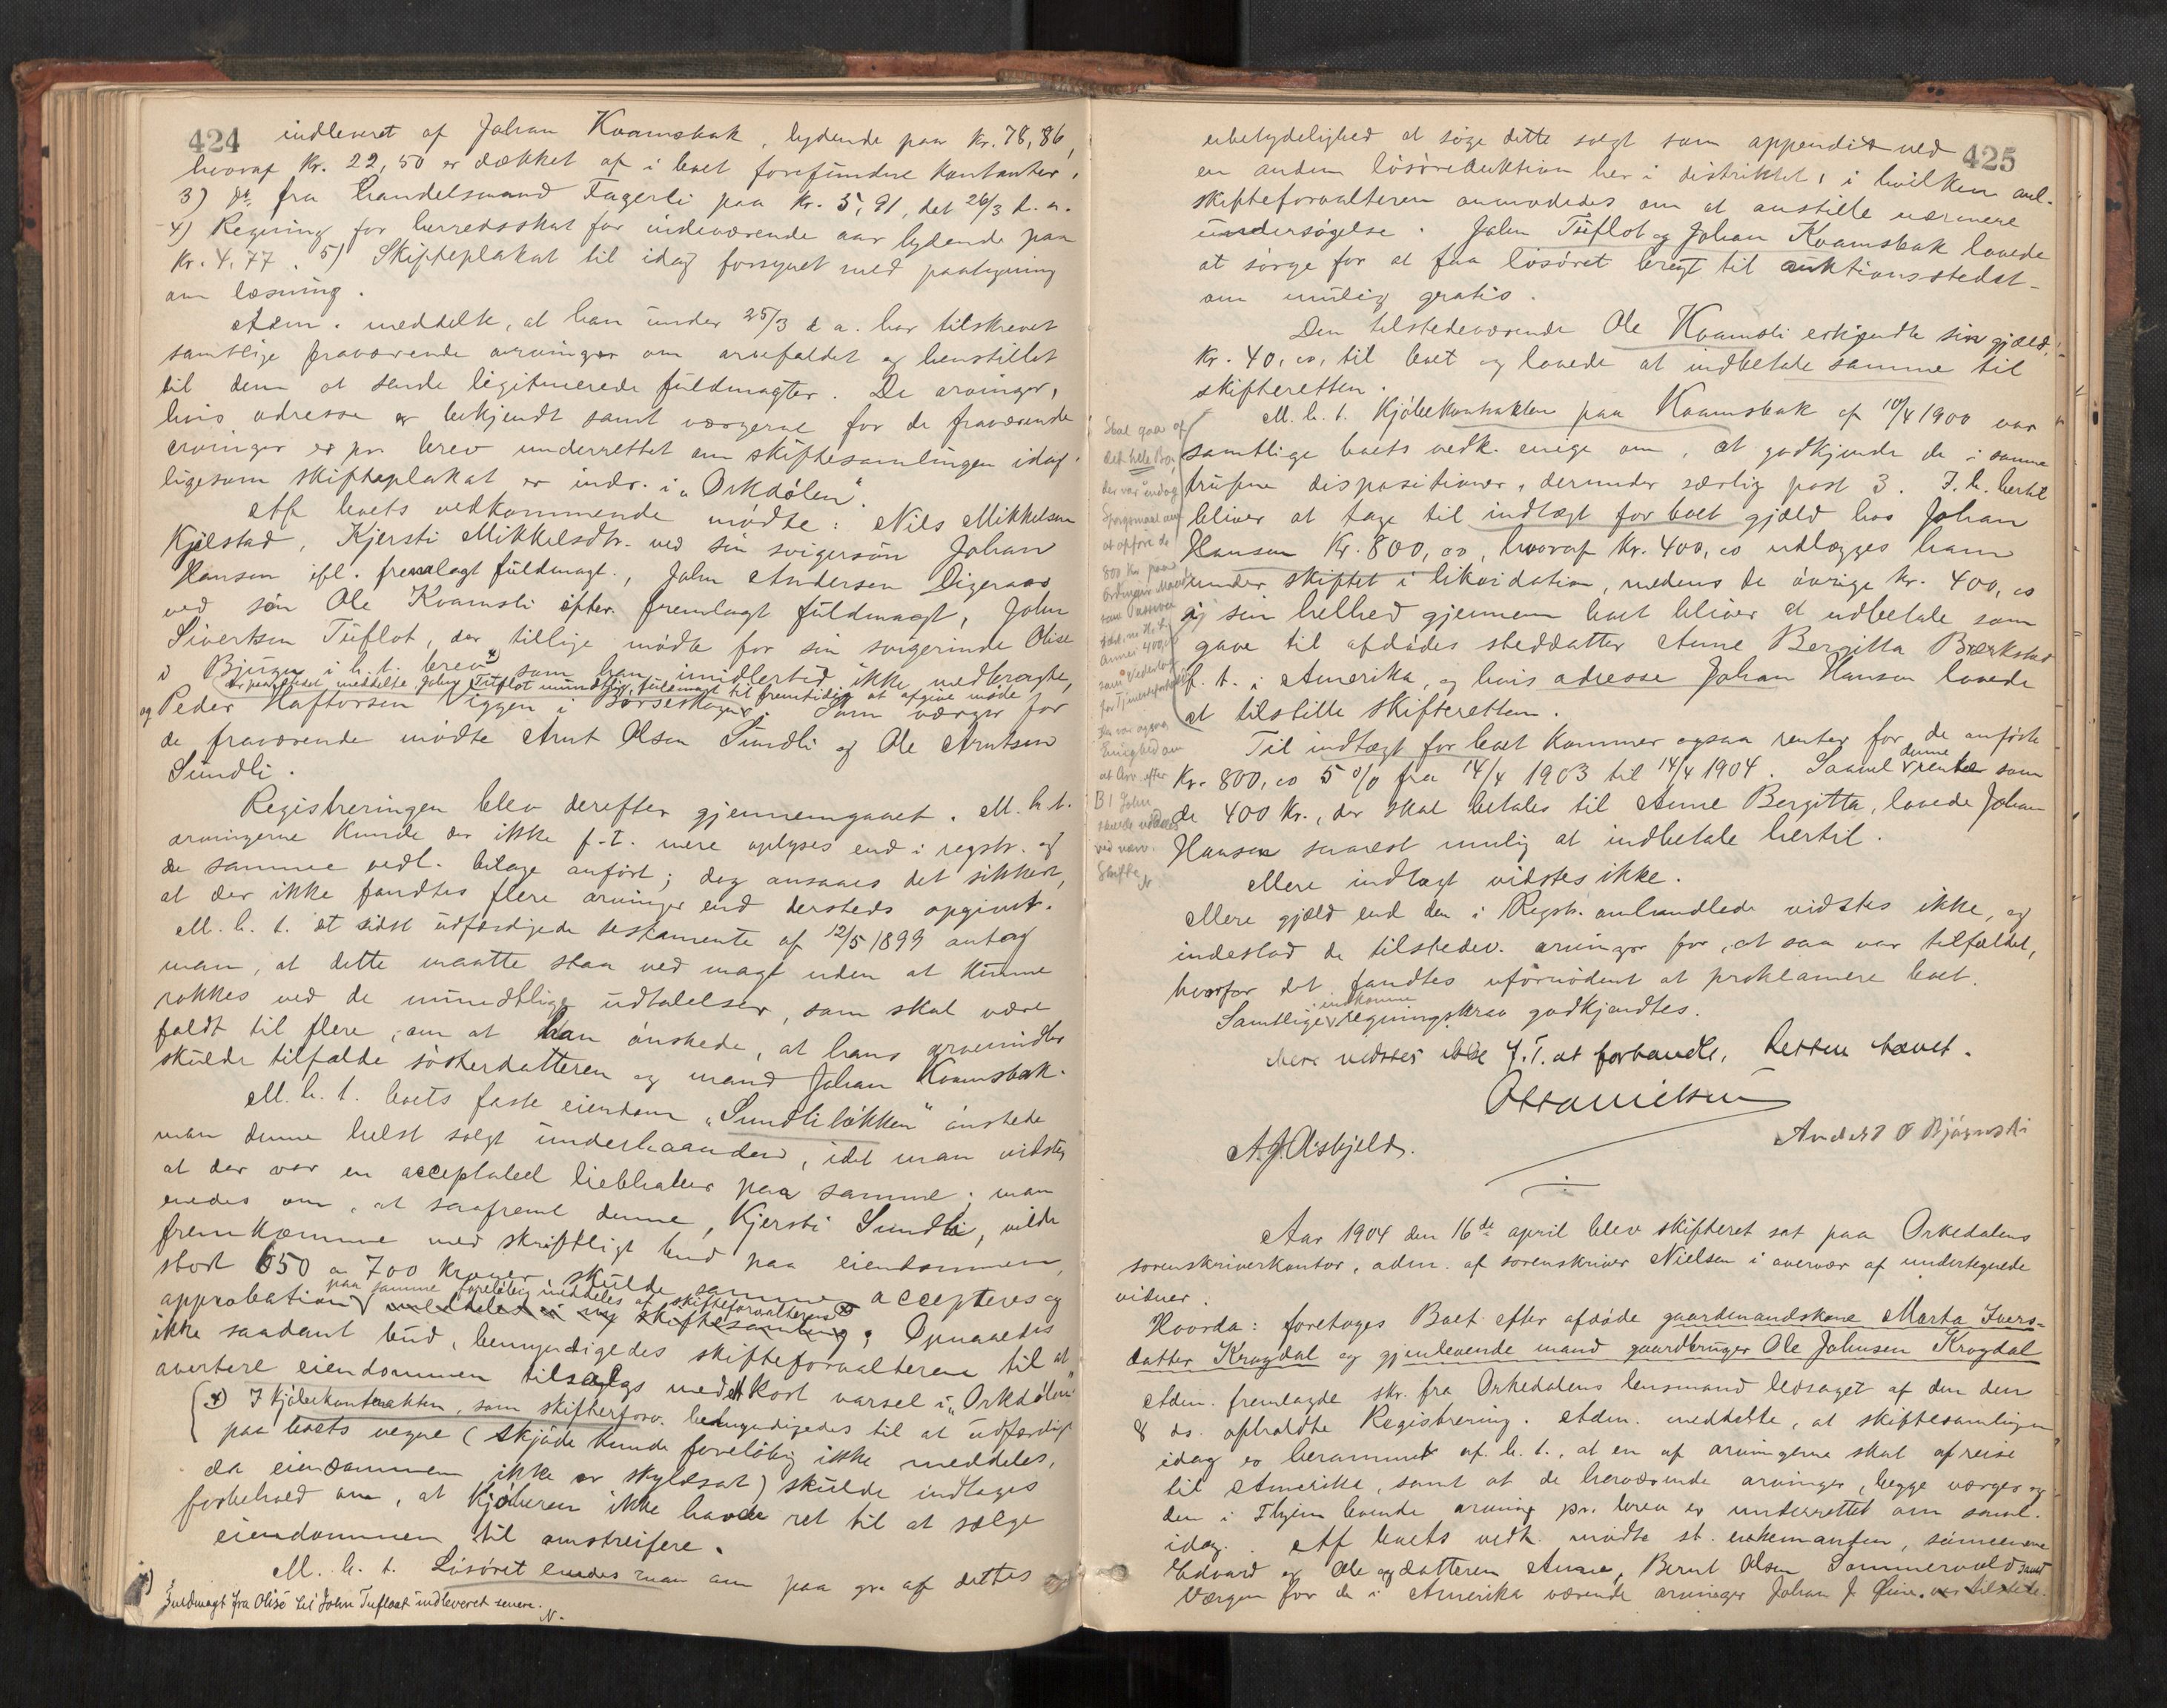 424
indleveret af Johan Kvamsbak, lydende paa Kr. 78,86,
hvoraf Kr. 22,50 er dækket af i boet forefundne kontanter,
3) do. fra handelsmand Fagerli paa Kr. 5,91, dat 26/3 d. a.
4) Regning for herredsskat for indeværende aar lydende paa
Kr. 4,77. 5) Skifteplakat til idag forsynet med paategning
om læsning.
Adm. meddelte, at han under 25/3 d. a. har tilskrevet
samtlige fraværende arvinger om arvefaldet og henstillet
til dem at sende legitimerede fuldmagter. De arvinger,
hvis adresse er bekjendt samt værgerne for de fraværende
arvinger er pr. brev underrettet om skiftesamlingen idag
ligesom skifteplakat er indr. i "Orkdølen".
Af boets vedkommende mødte: Nils Mikkelsen
Kjelstad, Kjersti Mikkelsdtr. ved sin svigersøn Johan
Hansen ifl. fremlagt fuldmagt, John Andersen Digeraas
ved søn Ole Kvamsli efter fremlagt fuldmagt, John
Sivertsen Tuflot, der tillige mødte for sin svigerinde Olise
i Bjugn i h. t. brev x) som han imidlertid ikke medbragte,
meddelte John Tuflot mundtlig fuldmagt til fremtidig at afgive møde
og Peder Haftorsen Viggen i Børseskogn. Som værger for
de fraværende mødte Arnt Olsen Sundli og Ole Arntsen
Sundli.
Registreringen blev derefter gjennemgaaet. M. h. t.
arvingerne kunde der ikke f. t. mere oplyses end i registr. og
de samme vedl. bilage anført; dog ansaaes det sikkert,
at der ikke fandtes flere arvinger end dersteds opgivet.
M. h. t. et sidst udfærdigede testamente af 12/5 1899 antog
man, at dette maatte staa ved magt uden at kunne
rokkes ved de mundtlige udtalelser, som skal være
faldt til flere, om at han ønskede, at hans arvemidler
skulde tilfalde søsterdatteren og mand Johan Kvamsbak.
M. h. t. boets faste eiendom "Sundliløkken" ønskede
man denne helst solgt underhaanden, idet man vidste,
at der var en acceptabel liebhaber paa samme; man
enedes om, at saafremt denne, Kjersti Sundli, vilde
fremkomme med skriftligt bud paa eiendommen,
stort 650 a 700 kroner, skulde samme accepteres og
paa samme foreløbig meddeles af skifteforvalteren x)
approbation meddeles i ny skiftesamling; Opnaaedes
ikke saadant bud, bemyndigedes skifteforvalteren til at
avertere eiendommen tilsalgs med kort varsel i "Orkdølen"
x) I kjøbekontrakten, som skifteforv. bemyndigedes til at udfærdige
paa boets vegne (skjøde kunde foreløbig ikke meddeles,
da eiendommen ikke er skyldsat) skulde indtages
forbehold om, at kjøberen ikke havde ret til at sælge
eiendommen til omstreifere.
M. h. t. Løsøret enedes man om paa gr. af dettes
x) Fuldmagt fra Olise til John Tufloat indleveret senere.
N.
425
ubetydelighed at søge dette solgt som appendix ved
en anden løsøreauktion her i distriktet, i hvilken anl.
skifteforvalteren anmodedes om at anstille nærmere
undersøgelse. John Tuflot og Johan Kvamsbak lovede
at sørge for at faa løsøret bragt til auktionsstedet
om mulig gratis.
Den tilstedeværende Ole Kvamsli erkjendte sin gjæld,
Kr. 40,00, til boet og lovede at indbetale samme til
skifteretten.
M. h. t. Kjøbekontrakten paa Kvamsbak af 10/4 1900 var
samtlige boets vedk. enige om, at godkjende de i samme
trufne dispositioner, derunder særlig post 3. I. h. hertil
bliver at tage til indtægt for boet gjæld hos Johan
Hansen Kr. 800,00, hvoraf Kr. 400,00 udlægges ham
under skiftet i likvidation, medens de øvrige Kr. 400,00
i sin helhed gjennem boet bliver at udbetale som
gave til afdødes steddatter Anne Bergitta Brækstad
f. t. i Amerika, og hvis adresse Johan Hansen lovede
at tilstille skifteretten.
Skal gaa af
det hele Bo,
der var endog
Spørgsmaal om
at opføre de
800 Kr paa
som Passiva
Anne 400,00
som Vederlag
for Tjeneste
Der var ogsaa
Enighed om
at Arv efter
B I John
skulde
ved nærv.
Skifte
N
Til indtægt for boet kommer ogsaa renter for de anførte
Kr. 800,00 5 % fra 14/4 1903 til 14/4 1904. Saavel denne rente som
de 400 Kr., der skal betales til Anne Bergitta, lovede Johan
Hansen snarest mulig at indbetale hertil.
Mere indtægt vidstes ikke.
Mere gjæld end den i Registr. omhandlede vidstes ikke, og
indestod de tilstedev. arvinger for, at saa var tilfældet,
hvorfor det fandtes ufornødent at proklamere boet.
Samtlige indkomne regningskrav godkjendtes.
Mere vidstes ikke f. T. at forhandle. Retten hævet.
Otto Nielsen
A. J. Asbjeld. Anders O Bjørnsli
Aar 1904 den 16de april blev skifteret sat paa Orkedalens
sorenskriverkontor, adm. af sorenskriver Nielsen i overvær af undertegnede
vidner.
Hvorda: foretoges Boet efter afdøde gaardmandskone Marta Ivers-
datter Krogdal og gjenlevende mand gaardbruger Ole Johnsen Krogdal
Adm. fremlagde skr. fra Orkedalens lensmand ledsaget af den den
8 ds. afholdte Registrering. Adm. meddelte, at skiftesamlingen
idag er berammet af. h. t., at en af arvingerne skal afreise
til Amerika, samt at de herværende arvinger, begge værger og
den i Thjem boende arving pr. brev er underrettet om saml.
idag. Af boets vedk. mødte st. enkemanden, sønnerne
Edvard og Ole og datteren Anne, Bernt Olsen Sommervold samt
Værgen for de i Amerika værende arvinger Johan J. Øien. var tilstede.